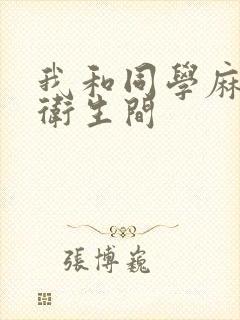 我和同學麻
衛生間
張博巍